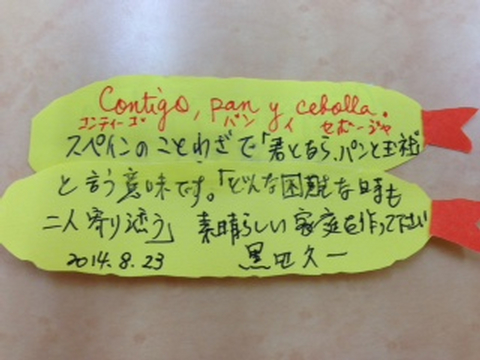 Contigo, pan y cebolla.
コンティーゴ・ パン イ セボージャ
スペインのことわざで「君となら、パンと玉ねぎ
と言う意味です。「どんな困難な時も
二人寄り添う」 素晴らしい家庭を作って下さい
2014.8.23 久一